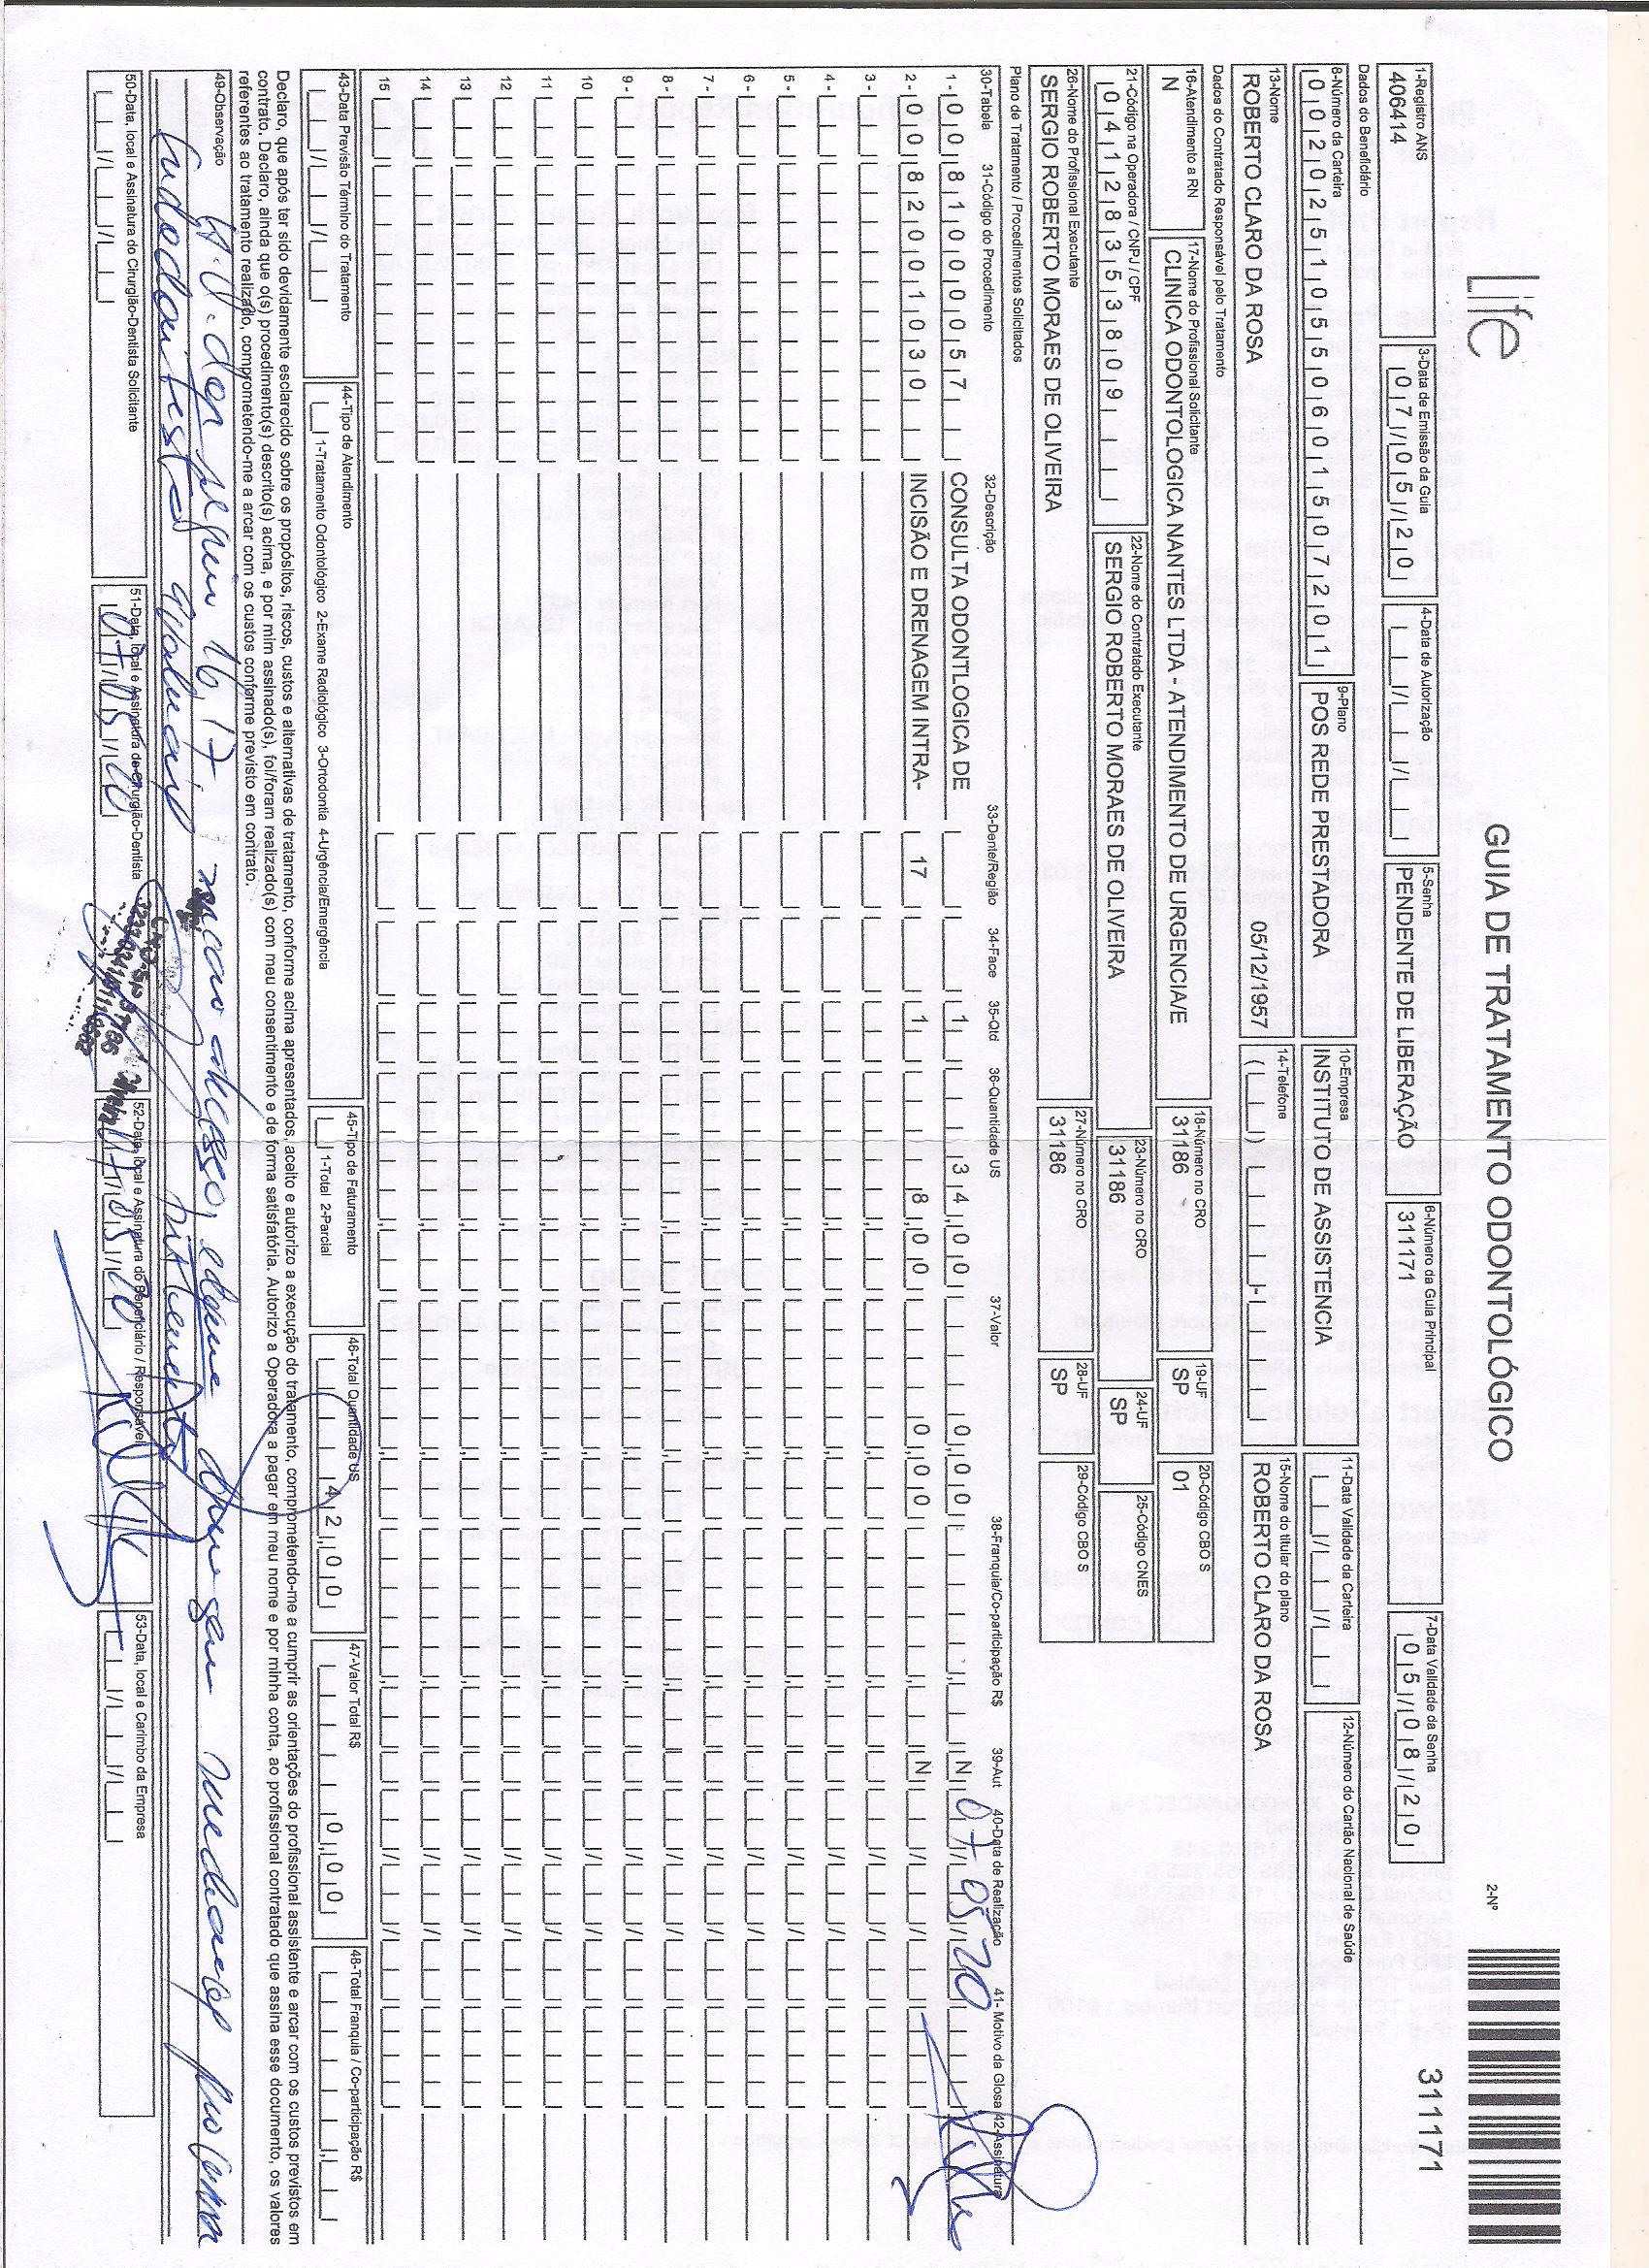 Life
GUIA DE TRATAMENTO ODONTOLÓGICO
2-Nº
31171
1-Registro ANS
406414
3-Data de Emissão da Guia
07/05/20
4-Data de Autorização
5-Senha
PENDENTE DE LIBERAÇÃO
6-Número da Guia Principal
311171
7-Data Validade da Senha
05/08/20
Dados do Beneficiário
8-Número da Carteira
00202510550601507201
9-Plano
POS REDE PRESTADORA
10-Empresa
INSTITUTO DE ASSISTENCIA
11-Data Validade da Carteira
12-Número do Cartão Nacional de Saúde
13-Nome
ROBERTO CLARO DA ROSA
05/12/1957
14-Telefone
15-Nome do titular do plano
ROBERTO CLARO DA ROSA
Dados do Contratado Responsável pelo Tratamento
16-Atendimento a RN
N
17-Nome do Profissional Solicitante
CLINICA ODONTOLOGICA NANTES LTDA - ATENDIMENTO DE URGENCIA/E
18-Número no CRO
31186
19-UF
SP
20-Código CBO S
01
21-Código na Operadora / CNPJ / CPF
04128353809
22-Nome do Contratado Executante
SERGIO ROBERTO MORAES DE OLIVEIRA
23-Número no CRO
31186
24-UF
SP
25-Código CNES
26-Nome do Profissional Executante
SERGIO ROBERTO MORAES DE OLIVEIRA
27-Número no CRO
31186
28-UF
SP
29-Código CBO S
Plano de Tratamento / Procedimentos Solicitados
30-Tabela 31-Código do Procedimento 32-Descrição 33-Dente/Região 34-Face 35-Qtd 36-Quantidade US 37-Valor 38-Franquia/Co-participação R$ 39-Aut 40-Data de Realização 41- Motivo da Glosa 42-Assinatura
1- 00 81000057 CONSULTA ODONTLOGICA DE 1 34,00 0,00 N 07 05 20
2- 00 82001030 INCISÃO E DRENAGEM INTRA- 17 1 8,00 0,00 N
3 -
4 -
5 -
6 -
7 -
8 -
9 -
10
11
12
13
14
15
43-Data Previsão Término do Tratamento
44-Tipo de Atendimento
1-Tratamento Odontológico 2-Exame Radiológico 3-Ortodontia 4-Urgência/Emergência
45-Tipo de Faturamento
1-Total 2-Parcial
46-Total Quantidade US
42,00
47-Valor Total R$
0,00
48-Total Franquia / Co-participação R$
Declaro, que após ter sido devidamente esclarecido sobre os propósitos, riscos, custos e alternativas de tratamento, conforme acima apresentados, aceito e autorizo a execução do tratamento, comprometendo-me a cumprir as orientações do profissional assistente e arcar com os custos previstos em
contrato. Declaro, ainda que o(s) procedimento(s) descrito(s) acima, e por mim assinado(s), foi/foram realizado(s) com meu consentimento e de forma satisfatória. Autorizo a Operadora a pagar em meu nome e por minha conta, ao profissional contratado que assina esse documento, os valores
referentes ao tratamento realizado, comprometendo-me a arcar com os custos conforme previsto em contrato.
49-Observação
dor 16, 17
50-Data, local e Assinatura do Cirurgião-Dentista Solicitante
51-Data, local e Assinatura de Cirurgião-Dentista
07/05/20
52-Data, local e Assinatura do Beneficiário / Responsável
07/05/20
53-Data, local e Carimbo da Empresa